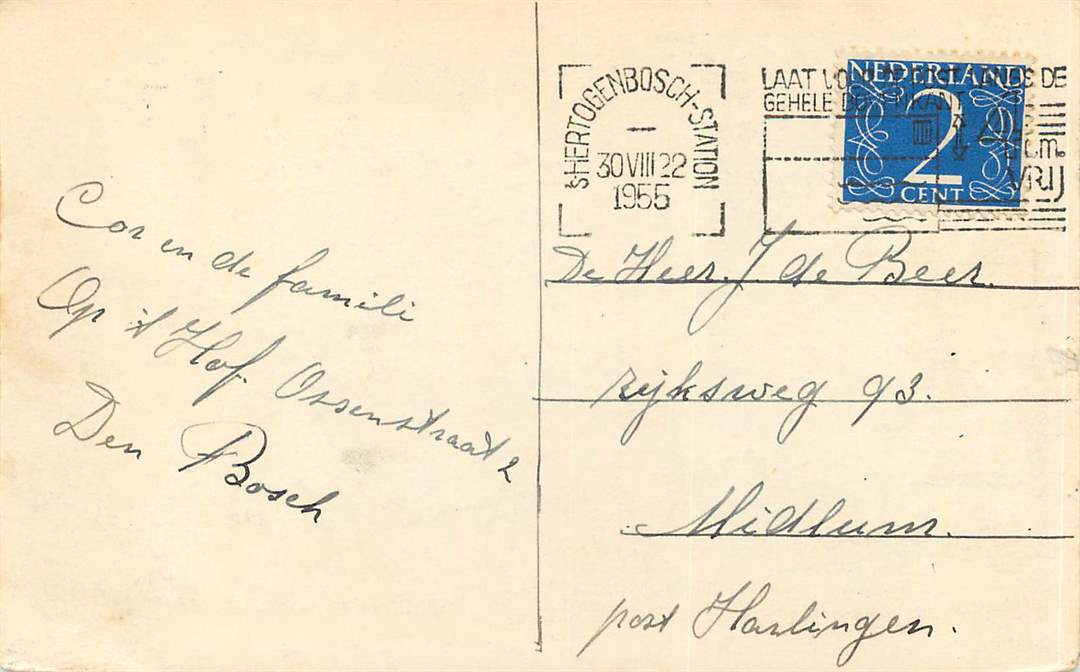 Cor en de famili
Op 't Hof. Ossenstraat 2
Den Bosch
's-HERTOGENBOSCH-STATION
30 VIII 22
1955
LAAT LANGS DE
GEHELE
cm.
VRIJ
NEDERLAND
2
CENT
De Heer. J de Beer.
Rijksweg 93.
Midlum.
post Harlingen.